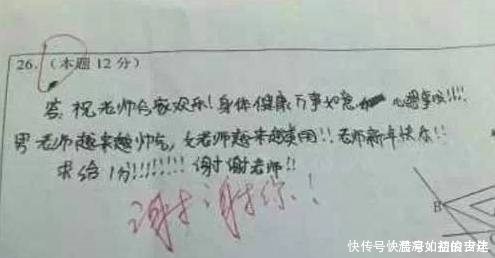 26.（本题12分）
答: 祝老师合家欢乐! 身体健康 万事如意 心想事成!!!!
男老师越来越帅气, 女老师越来越美丽!! 老师新年快乐!!
求给1分!!!!!!!! 谢谢老师!!
谢谢你!!
B
快传号